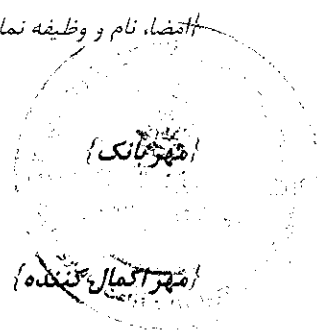 [امضا، نام و وظیفه نما
[مهر بانک]
[مهر اکمال کننده]